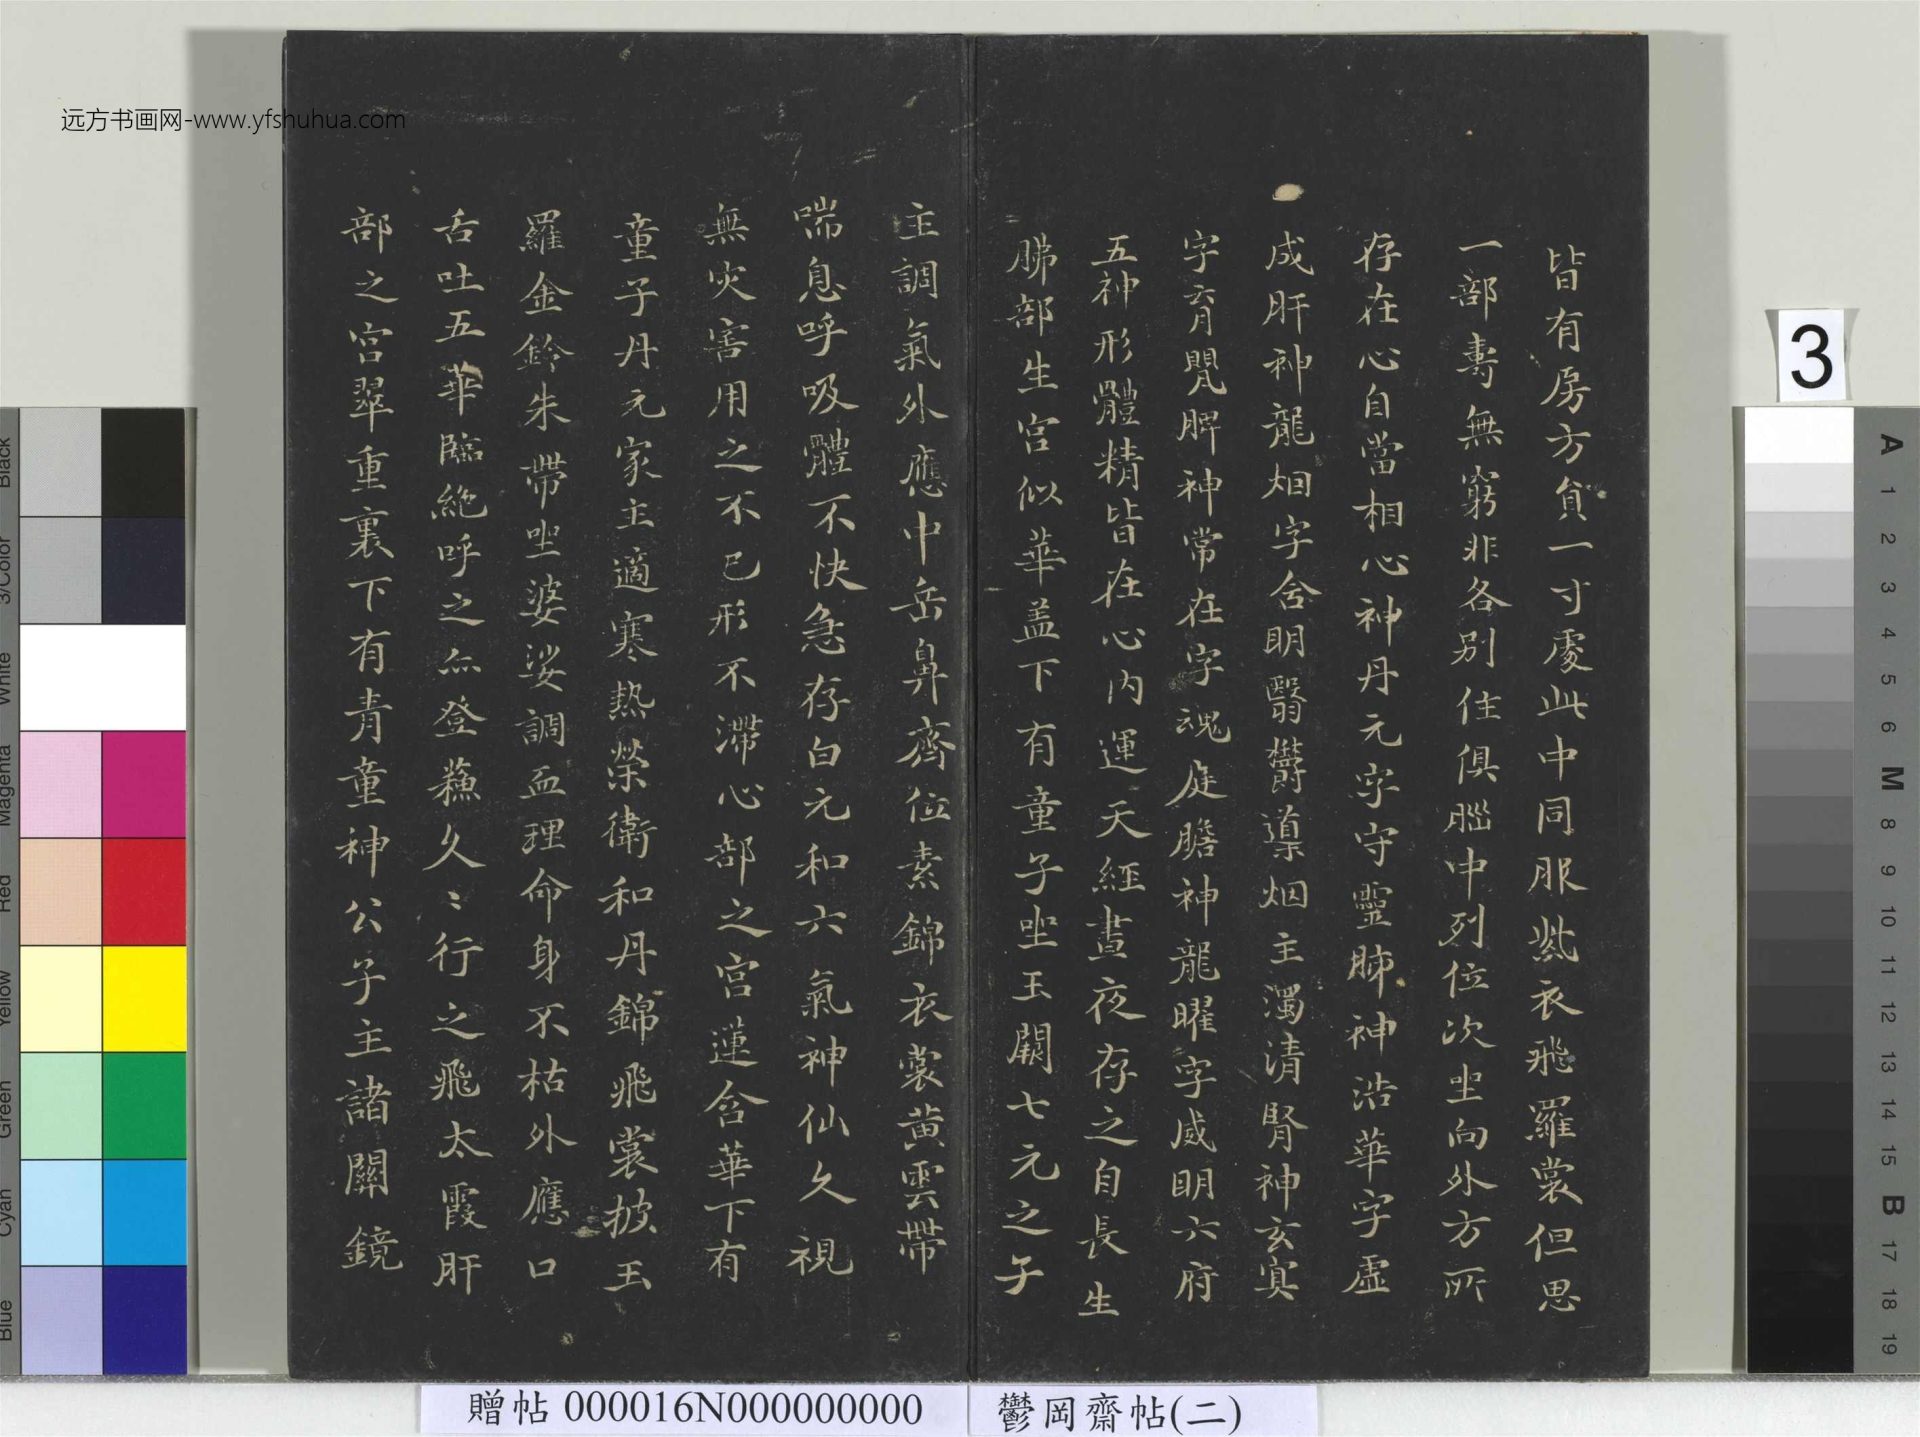 远方书画网-www.yfshuhua.com
皆有房方負一寸處此中同服紫衣飛羅裳但思
一部壽無窮非各別住俱腦中列位次坐向外方所
存在心自當相心神丹元字守靈肺神浩華字虛
成肝神龍烟字含明翳欝導烟主濁清腎神玄冥
字育嬰脾神常在字魂庭膽神龍曜字威明六府
五神形體精皆在心內運天經晝夜存之自長生
肺部生宮似華盖下有童子坐玉闕七元之子
主調氣外應中岳鼻齊位素錦衣裳黃雲帶
喘息呼吸體不快急存白元和六氣神仙久視
無灾害用之不已形不滯心部之宮蓮含華下有
童子丹元家主適寒熱榮衛和丹錦飛裳披玉
羅金鈴朱帶坐婆娑調血理命身不枯外應口
舌吐五華臨絶呼之登蘓久〻行之飛太霞肝
部之宮翠重裏下有青童神公子主諸關鏡
3
A
1
2
3
4
5
6
M
8
9
10
11
12
13
14
15
B
17
18
19
Black
3/Color
White
Magenta
Red
Yellow
Green
Cyan
Blue
贈帖 000016N000000000
鬱岡齋帖(二)